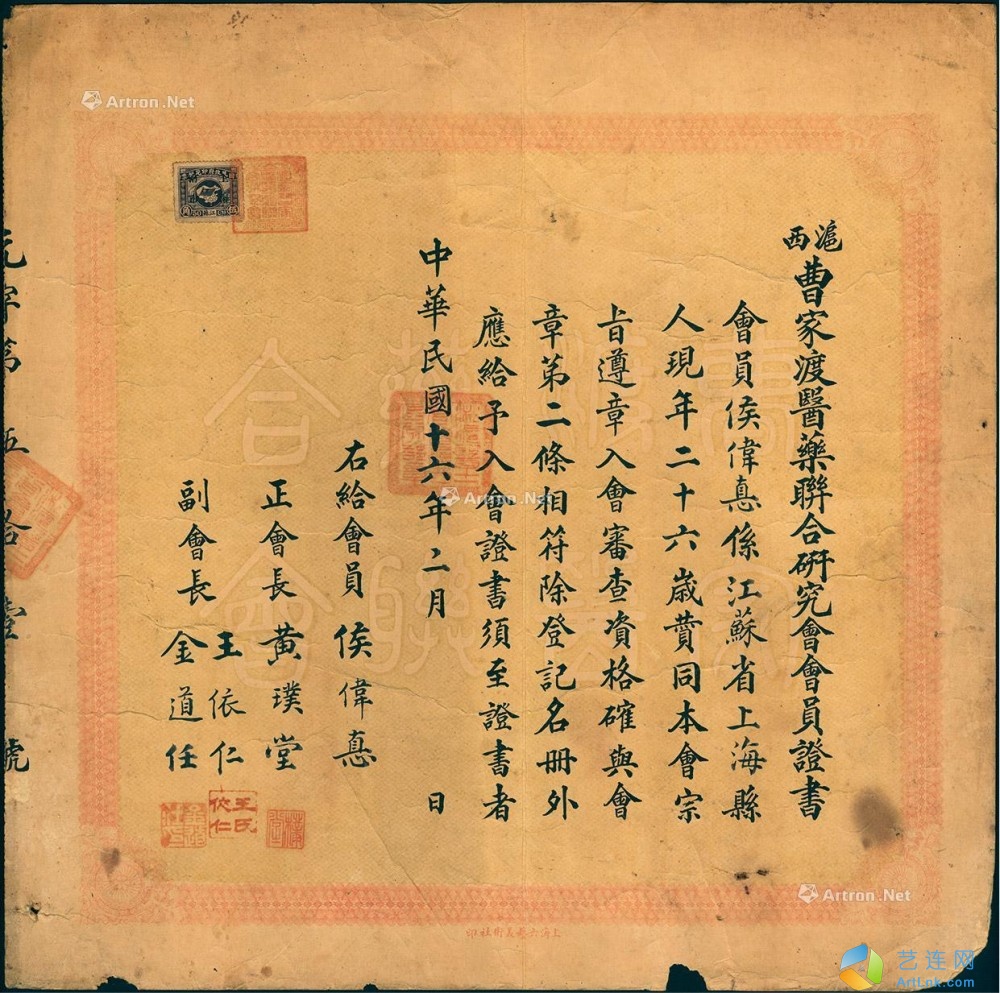 滬西曹家渡醫藥聯合研究會會員證書
會員侯偉惪係江蘇省上海縣
人現年二十六歲贊同本會宗
旨遵章入會審查資格確與會
章第二條相符除登記名冊外
應給予入會證書須至證書者
中華民國十六年二月 日
右給會員 侯偉惪
正會長 黃璞堂
副會長 王依仁
金道任
王氏依仁
元字第伍拾壹號
Artron.Net
Artron.Net
Artron.Net
艺连网
ArtLok.com